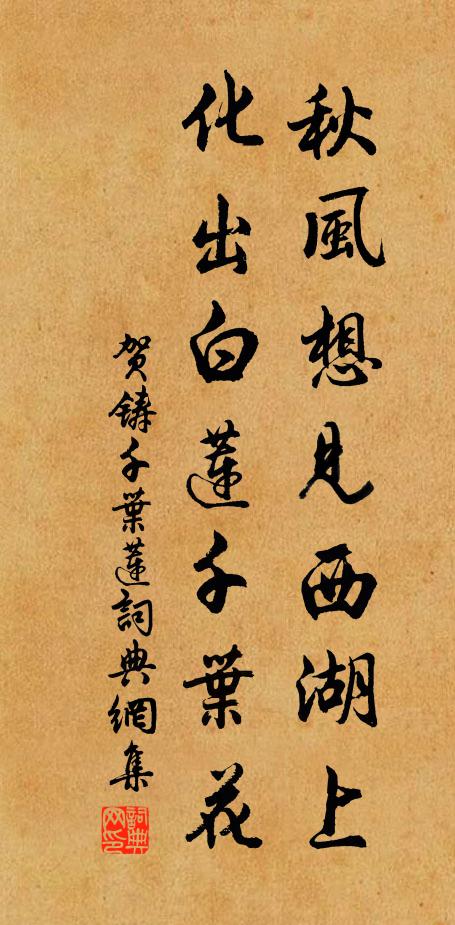 秋風想見西湖上
化出白蓮千葉花
贺鑄千葉蓮詞典網集
詞典网印